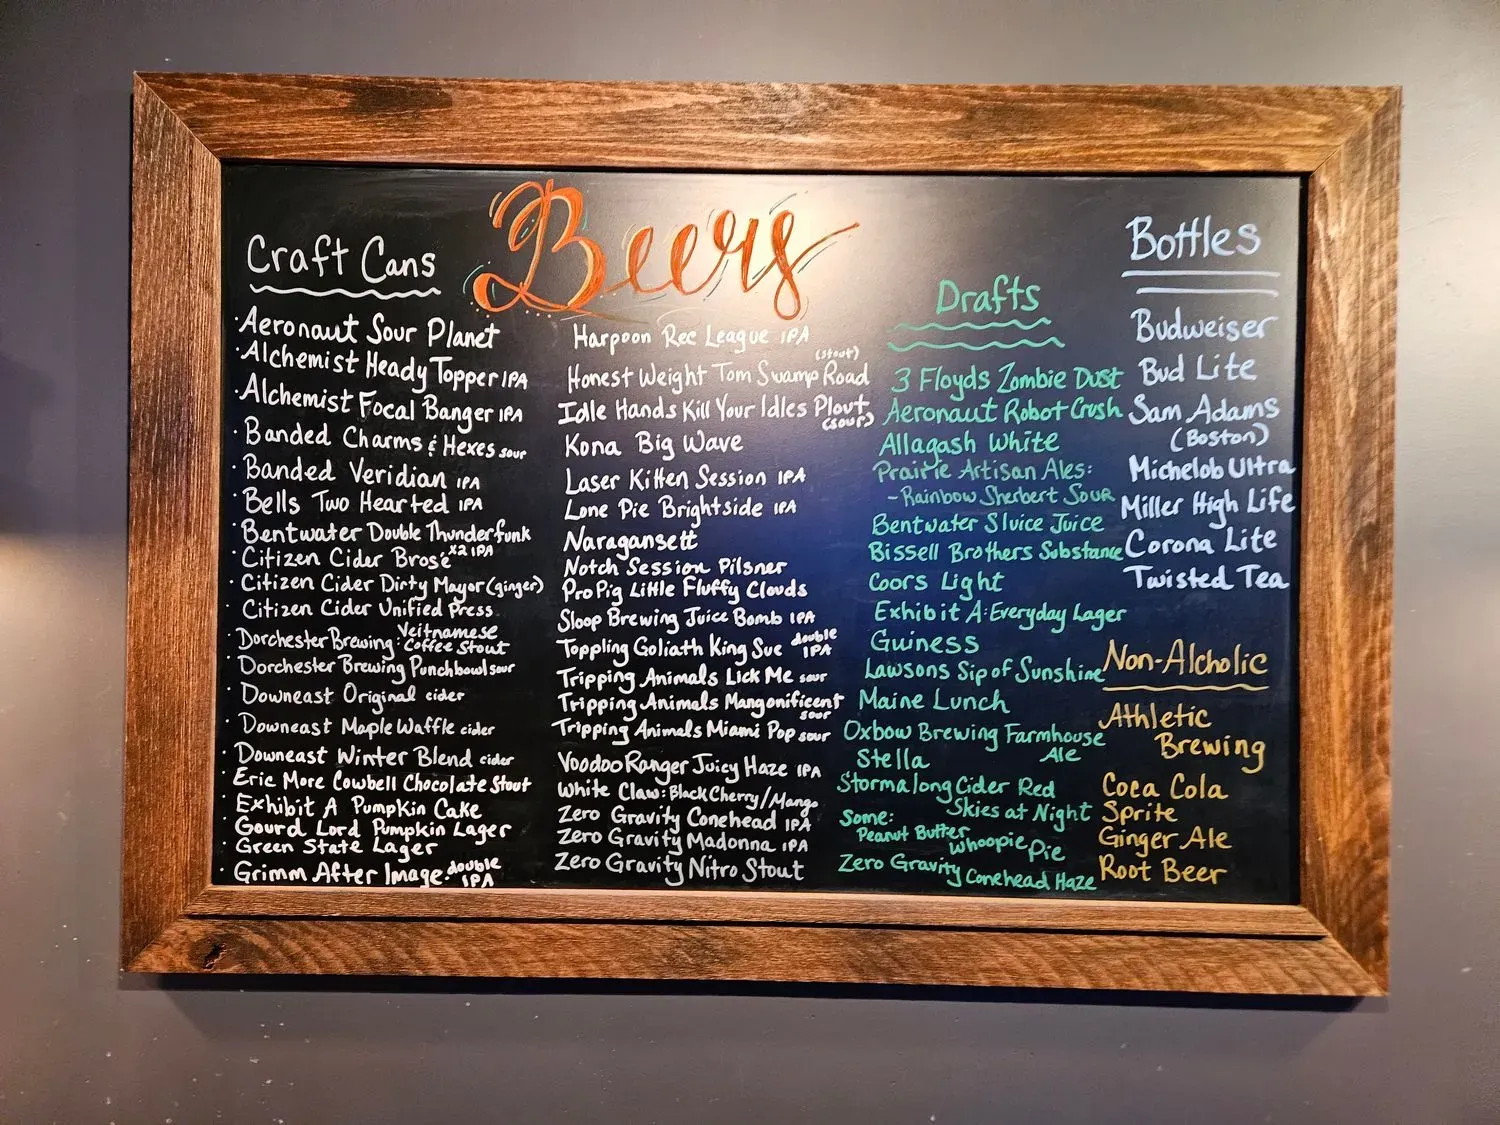 Beers
Craft Cans
Aeronaut Sour Planet
Alchemist Heady Topper IPA
Alchemist Focal Banger IPA
Banded Charms & Hexes sour
Banded Veridian IPA
Bells Two Hearted IPA
Bentwater Double Thunderfunk
x2 IPA
Citizen Cider Brosé
Citizen Cider Dirty Mayor (ginger)
Citizen Cider Unified Press
Dorchester Brewing: Veitnamese
Coffee Stout
Dorchester Brewing Punchbowl sour
Downeast Original cider
Downeast Maple Waffle cider
Downeast Winter Blend cider
Eric More Cowbell Chocolate Stout
Exhibit A Pumpkin Cake
Gourd Lord Pumpkin Lager
Green State Lager
Grimm After Image double
IPA
Harpoon Rec League IPA
(stout)
Honest Weight Tom Swamp Road
Idle Hands Kill Your Idles Plout
(sour)
Kona Big Wave
Laser Kitten Session IPA
Lone Pie Brightside IPA
Naragansett
Notch Session Pilsner
Pro Pig Little Fluffy Clouds
Sloop Brewing Juice Bomb IPA
Toppling Goliath King Sue double
IPA
Tripping Animals Lick Me sour
Tripping Animals Mangonificent
sour
Tripping Animals Miami Pop sour
Voodoo Ranger Juicy Haze IPA
White Claw: Black Cherry/Mango
Zero Gravity Conehead IPA
Zero Gravity Madonna IPA
Zero Gravity Nitro Stout
Drafts
3 Floyds Zombie Dust
Aeronaut Robot Crush
Allagash White
Prairie Artisan Ales:
-Rainbow Sherbert Sour
Bentwater Sluice Juice
Bissell Brothers Substance
Coors Light
Exhibit A: Everyday Lager
Guiness
Lawsons Sip of Sunshine
Maine Lunch
Oxbow Brewing Farmhouse
Ale
Stella
Stormalong Cider Red
Skies at Night
Some:
Peanut Butter
Whoopie Pie
Zero Gravity Conehead Haze
Bottles
Budweiser
Bud Lite
Sam Adams
(Boston)
Michelob Ultra
Miller High Life
Corona Lite
Twisted Tea
Non-Alcholic
Athletic
Brewing
Coca Cola
Sprite
Ginger Ale
Root Beer